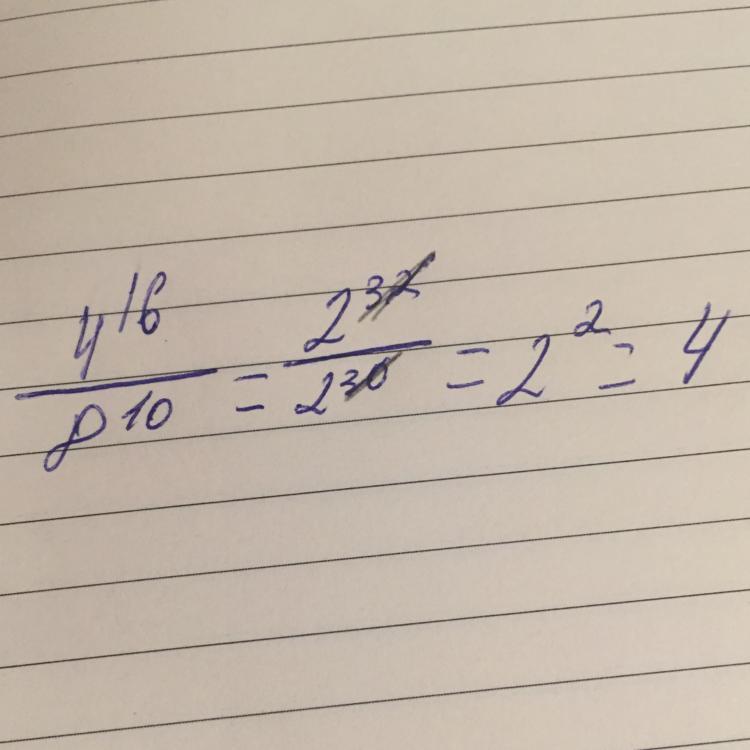 4^16 / 8^10 = 2^32 / 2^30 = 2^2 = 4